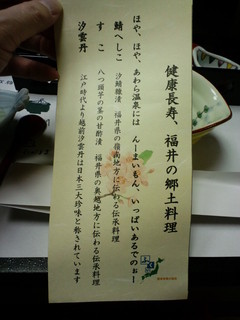 健康長寿、福井の郷土料理
ほや、ほや、あわら温泉には んーまいもん、いっぱいあるでのぉー
鯖へしこ 汐鯖糠漬 福井県の嶺南地方に伝わる伝承料理
すこ 八つ頭芋の茎の甘酢漬 福井県の奥越地方に伝わる伝承料理
汐雲丹 江戸時代より越前汐雲丹は日本三大珍味と称されています